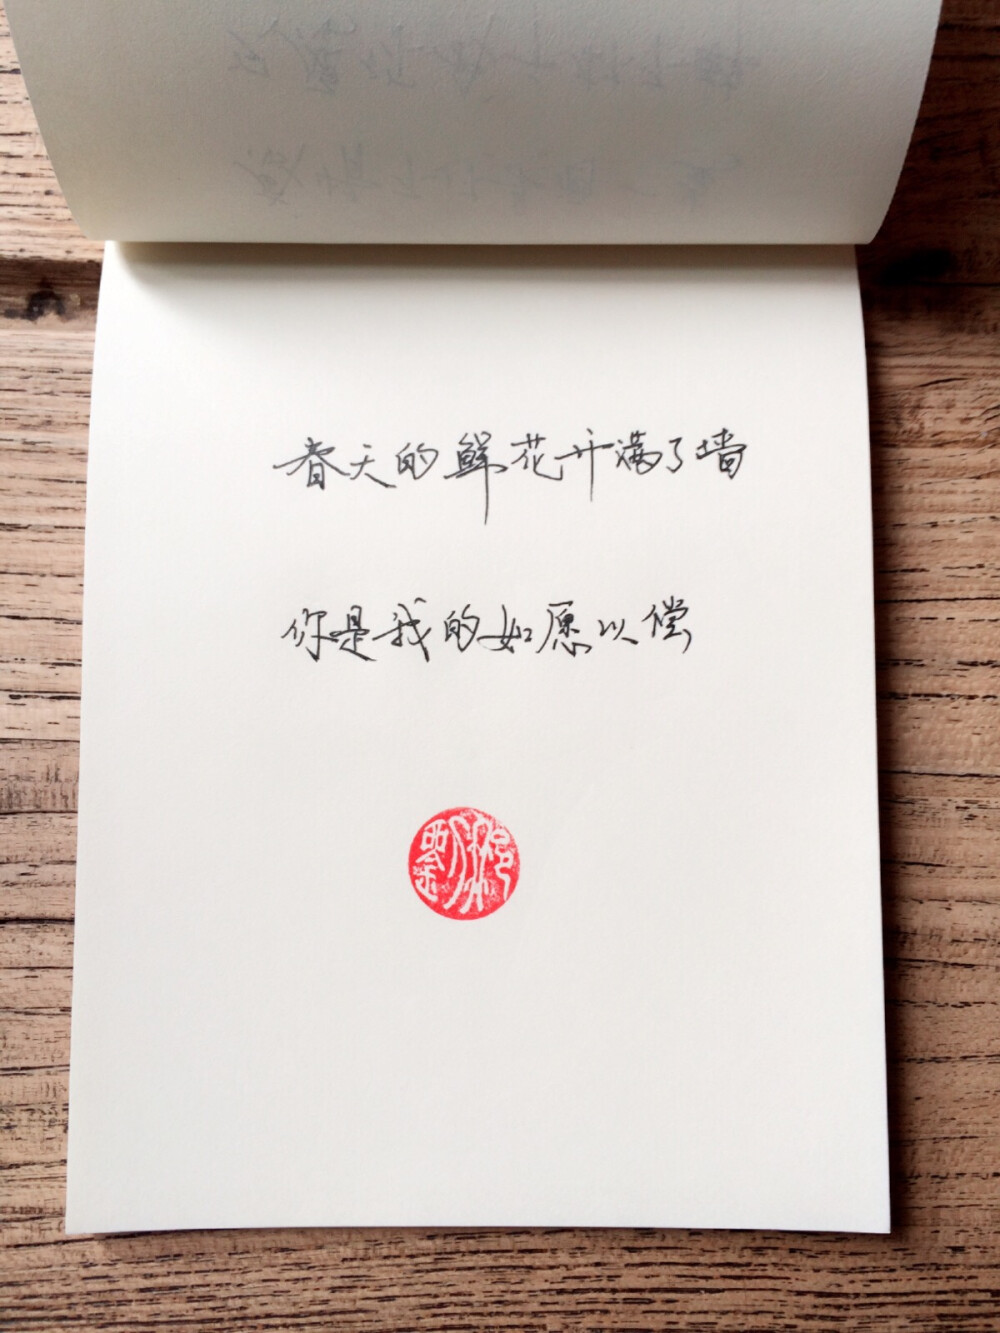 春天的鲜花开满了墙
你是我的如愿以偿